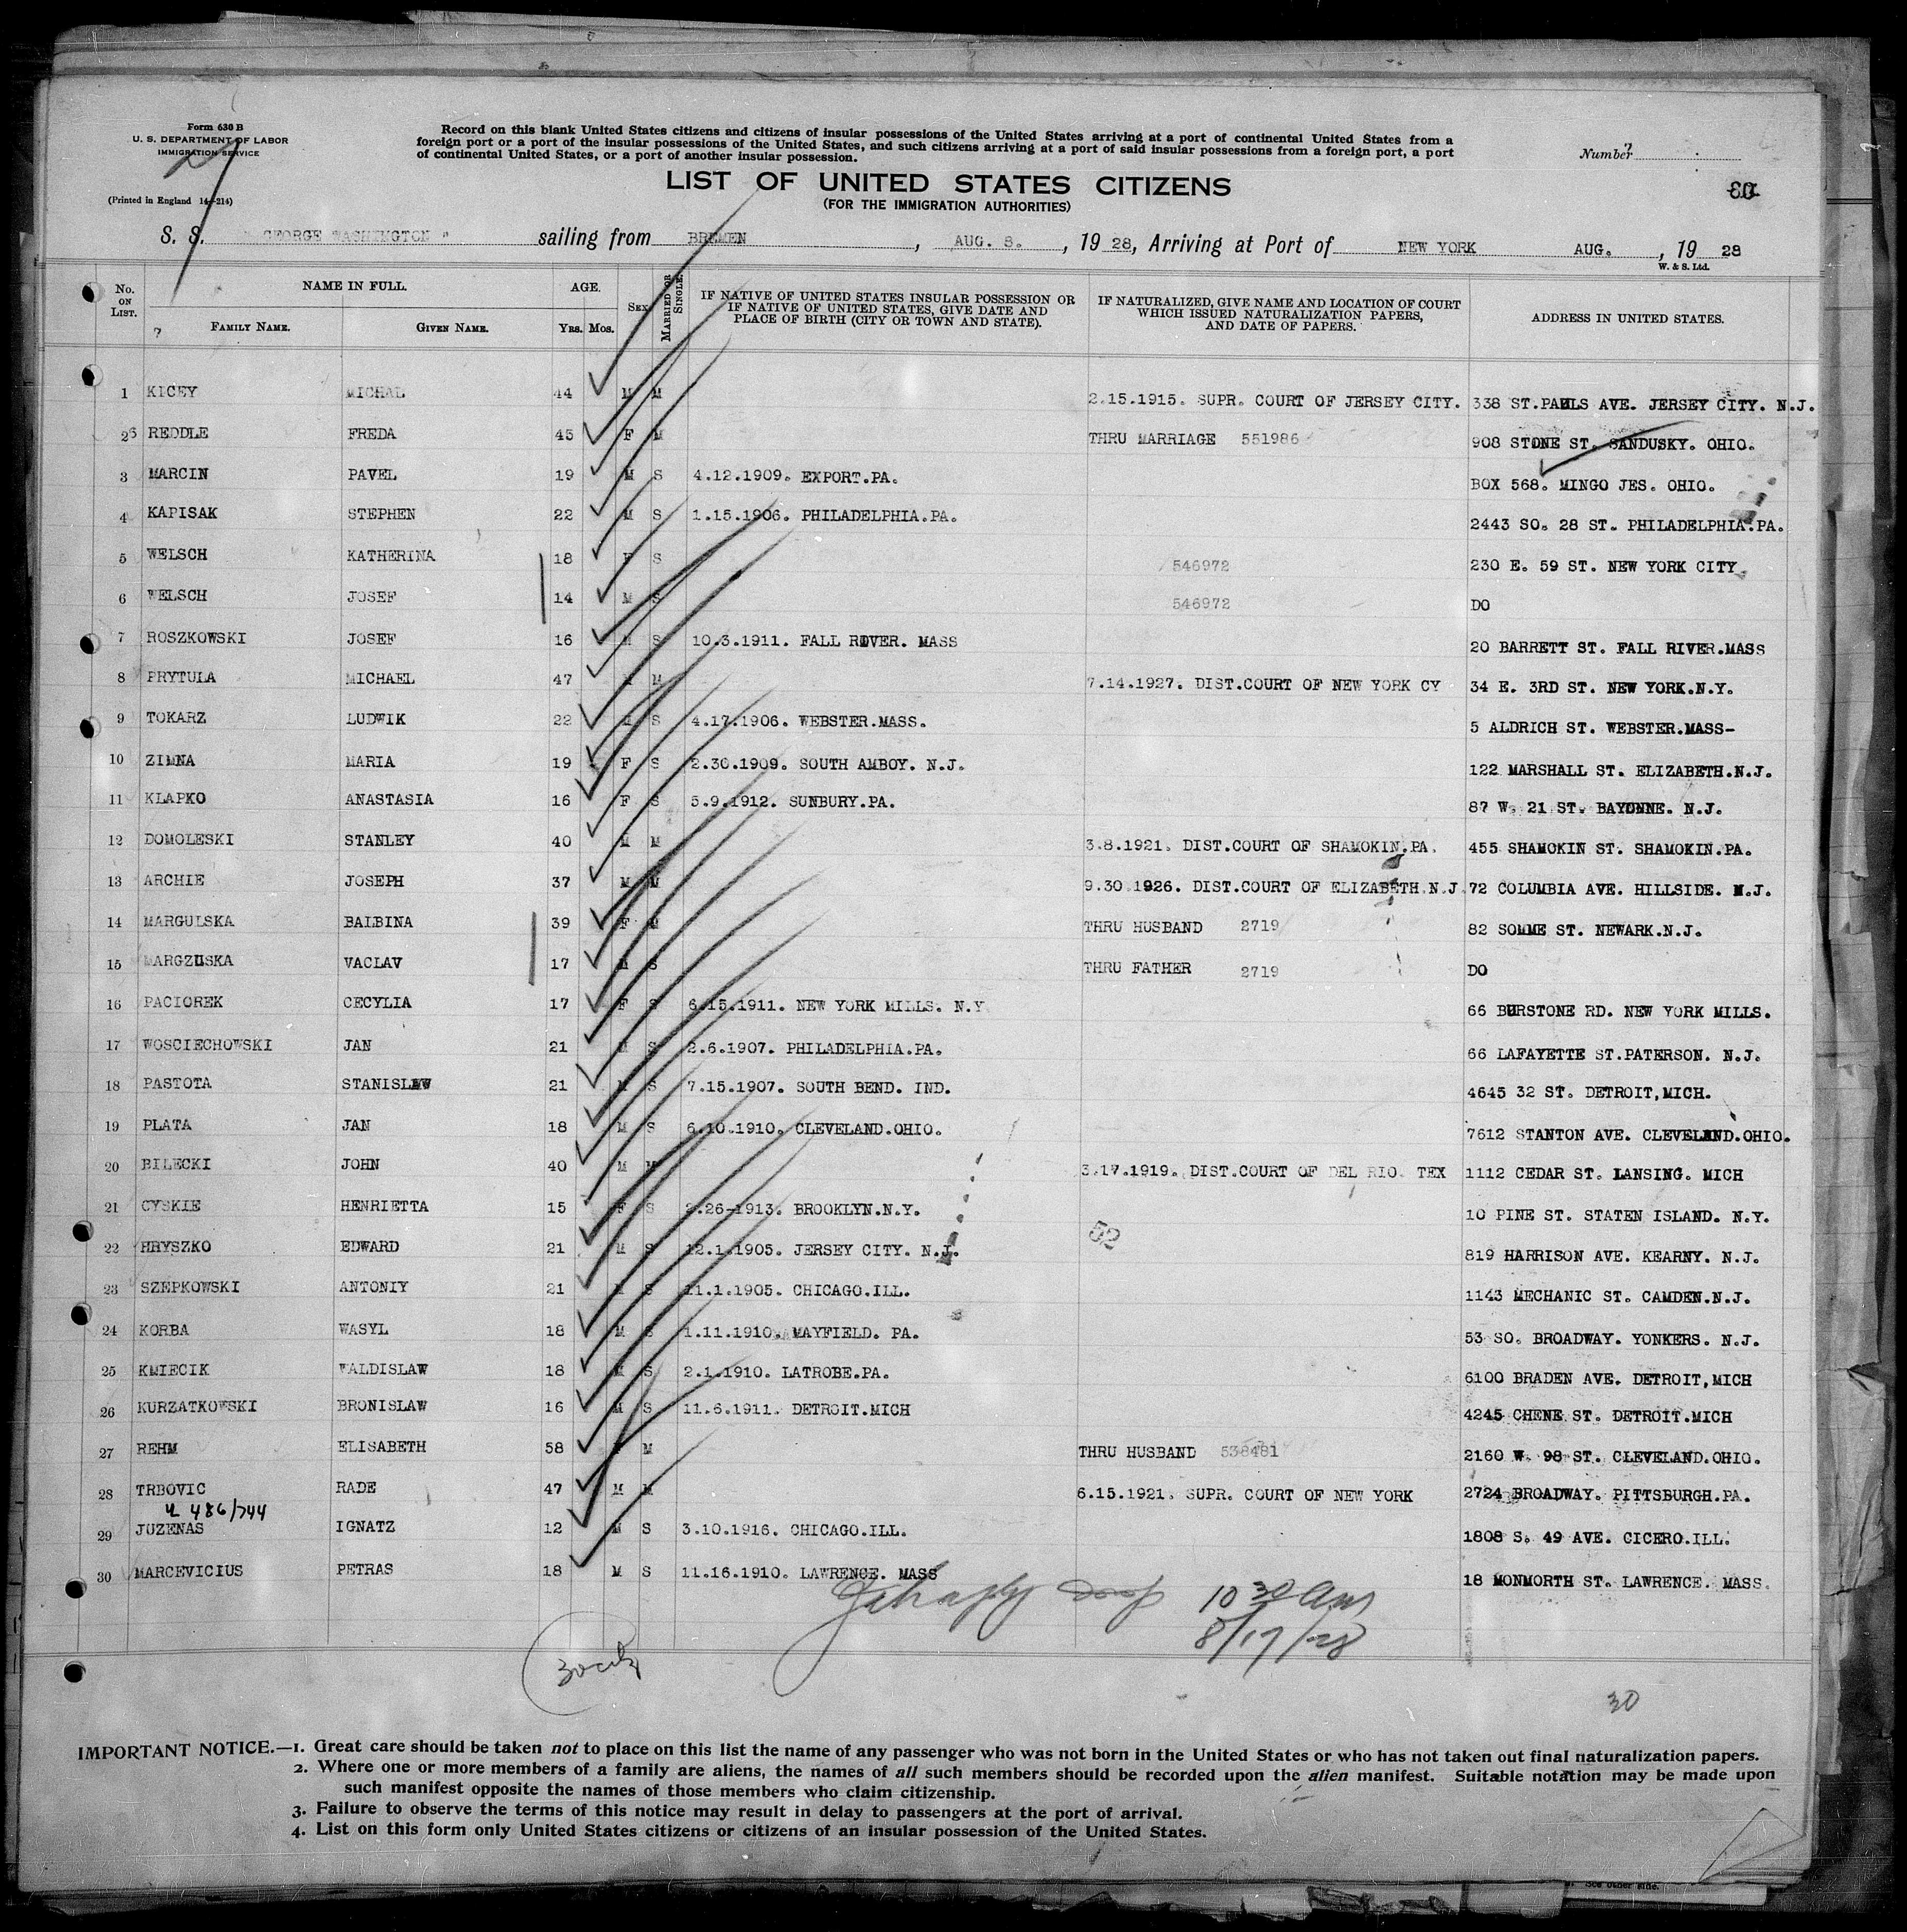 Form 630 B
U. S. DEPARTMENT OF LABOR
IMMIGRATION SERVICE
(Printed in England 14-214)
Record on this blank United States citizens and citizens of insular possessions of the United States arriving at a port of continental United States from a
foreign port or a port of the insular possessions of the United States, and such citizens arriving at a port of said insular possessions from a foreign port, a port
of continental United States, or a port of another insular possession.
Number 7
LIST OF UNITED STATES CITIZENS
(FOR THE IMMIGRATION AUTHORITIES)
S. S. "GEORGE WASHINGTON" sailing from BREMEN, AUG. 8., 1928, Arriving at Port of NEW YORK AUG., 1928
W. & S. Ltd.
No. ON LIST. NAME IN FULL. FAMILY NAME. GIVEN NAME. AGE. YRS. MOS. SEX MARRIED OR SINGLE. IF NATIVE OF UNITED STATES INSULAR POSSESSION OR IF NATIVE OF UNITED STATES, GIVE DATE AND PLACE OF BIRTH (CITY OR TOWN AND STATE). IF NATURALIZED, GIVE NAME AND LOCATION OF COURT WHICH ISSUED NATURALIZATION PAPERS, AND DATE OF PAPERS. ADDRESS IN UNITED STATES.
1 KICEY MICHAL 44 M M 2.15.1915. SUPR. COURT OF JERSEY CITY. 338 ST.PAULS AVE. JERSEY CITY. N.J.
2 REDDLE FREDA 45 F M THRU MARRIAGE 551986 908 STONE ST. SANDUSKY. OHIO.
3 MARCIN PAVEL 19 M S 4.12.1909. EXPORT.PA. BOX 568. MINGO JES. OHIO.
4 KAPISAK STEPHEN 22 M S 1.15.1906. PHILADELPHIA.PA. 2443 SO. 28 ST. PHILADELPHIA.PA.
5 WELSCH KATHERINA 18 F S 546972 230 E. 59 ST. NEW YORK CITY
6 WELSCH JOSEF 14 M S 546972 DO
7 ROSZKOWSKI JOSEF 16 M S 10.3.1911. FALL RIVER. MASS 20 BARRETT ST. FALL RIVER.MASS
8 PRYTULA MICHAEL 47 M M 7.14.1927. DIST.COURT OF NEW YORK CY 34 E. 3RD ST. NEW YORK.N.Y.
9 TOKARZ LUDWIK 22 M S 4.17.1906. WEBSTER.MASS. 5 ALDRICH ST. WEBSTER.MASS-
10 ZIMNA MARIA 19 F S 2.30.1909. SOUTH AMBOY. N.J. 122 MARSHALL ST. ELIZABETH.N.J.
11 KLAPKO ANASTASIA 16 F S 5.9.1912. SUNBURY.PA. 87 W. 21 ST. BAYONNE. N.J.
12 DOMOLESKI STANLEY 40 M M 3.8.1921. DIST.COURT OF SHAMOKIN.PA. 455 SHAMOKIN ST. SHAMOKIN.PA.
13 ARCHIE JOSEPH 37 M M 9.30.1926. DIST.COURT OF ELIZABETH.N.J. 72 COLUMBIA AVE. HILLSIDE. N.J.
14 MARGULSKA BALBINA 39 F M THRU HUSBAND 2719 82 SOMME ST. NEWARK.N.J.
15 MARGZUSKA VACLAV 17 M S THRU FATHER 2719 DO
16 PACIOREK CECYLIA 17 F S 6.15.1911. NEW YORK MILLS. N.Y 66 BURSTONE RD. NEW YORK MILLS.
17 WOSCIECHOWSKI JAN 21 M S 2.6.1907. PHILADELPHIA.PA. 66 LAFAYETTE ST.PATERSON. N.J.
18 PASTOTA STANISLAW 21 M S 7.15.1907. SOUTH BEND. IND. 4645 32 ST. DETROIT,MICH.
19 PLATA JAN 18 M S 6.10.1910. CLEVELAND.OHIO. 7612 STANTON AVE. CLEVELAND.OHIO.
20 BILECKI JOHN 40 M M 3.17.1919. DIST.COURT OF DEL RIO. TEX 1112 CEDAR ST. LANSING. MICH
21 CYSKIE HENRIETTA 15 F S 2.26-1913. BROOKLYN.N.Y. 10 PINE ST. STATEN ISLAND. N.Y.
22 HRYSZKO EDWARD 21 M S 12.1.1905. JERSEY CITY. N.J. 52 819 HARRISON AVE. KEARNY. N.J.
23 SZEPKOWSKI ANTONIY 21 M S 11.1.1905. CHICAGO.ILL. 1143 MECHANIC ST. CAMDEN.N.J.
24 KORBA WASYL 18 M S 1.11.1910. MAYFIELD. PA. 53 SO. BROADWAY. YONKERS. N.J.
25 KMIECIK WALDISLAW 18 M S 2.1.1910. LATROBE.PA. 6100 BRADEN AVE. DETROIT,MICH
26 KURZATKOWSKI BRONISLAW 16 M S 11.6.1911. DETROIT.MICH 4245 CHENE ST. DETROIT.MICH
27 REHM ELISABETH 58 F M THRU HUSBAND 538481 2160 W. 98 ST. CLEVELAND.OHIO.
28 TRBOVIC RADE 47 M M 6.15.1921. SUPR. COURT OF NEW YORK 2724 BROADWAY. PITTSBURGH.PA.
486/744
29 JUZENAS IGNATZ 12 M S 3.10.1916. CHICAGO.ILL. 1808 S. 49 AVE. CICERO.ILL.
30 MARCEVICIUS PETRAS 18 M S 11.16.1910. LAWRENCE. MASS 18 MONMORTH ST. LAWRENCE. MASS.
10 30 Am
8/17/28
30
IMPORTANT NOTICE.—1. Great care should be taken not to place on this list the name of any passenger who was not born in the United States or who has not taken out final naturalization papers.
2. Where one or more members of a family are aliens, the names of all such members should be recorded upon the alien manifest. Suitable notation may be made upon
such manifest opposite the names of those members who claim citizenship.
3. Failure to observe the terms of this notice may result in delay to passengers at the port of arrival.
4. List on this form only United States citizens or citizens of an insular possession of the United States.
See other side.